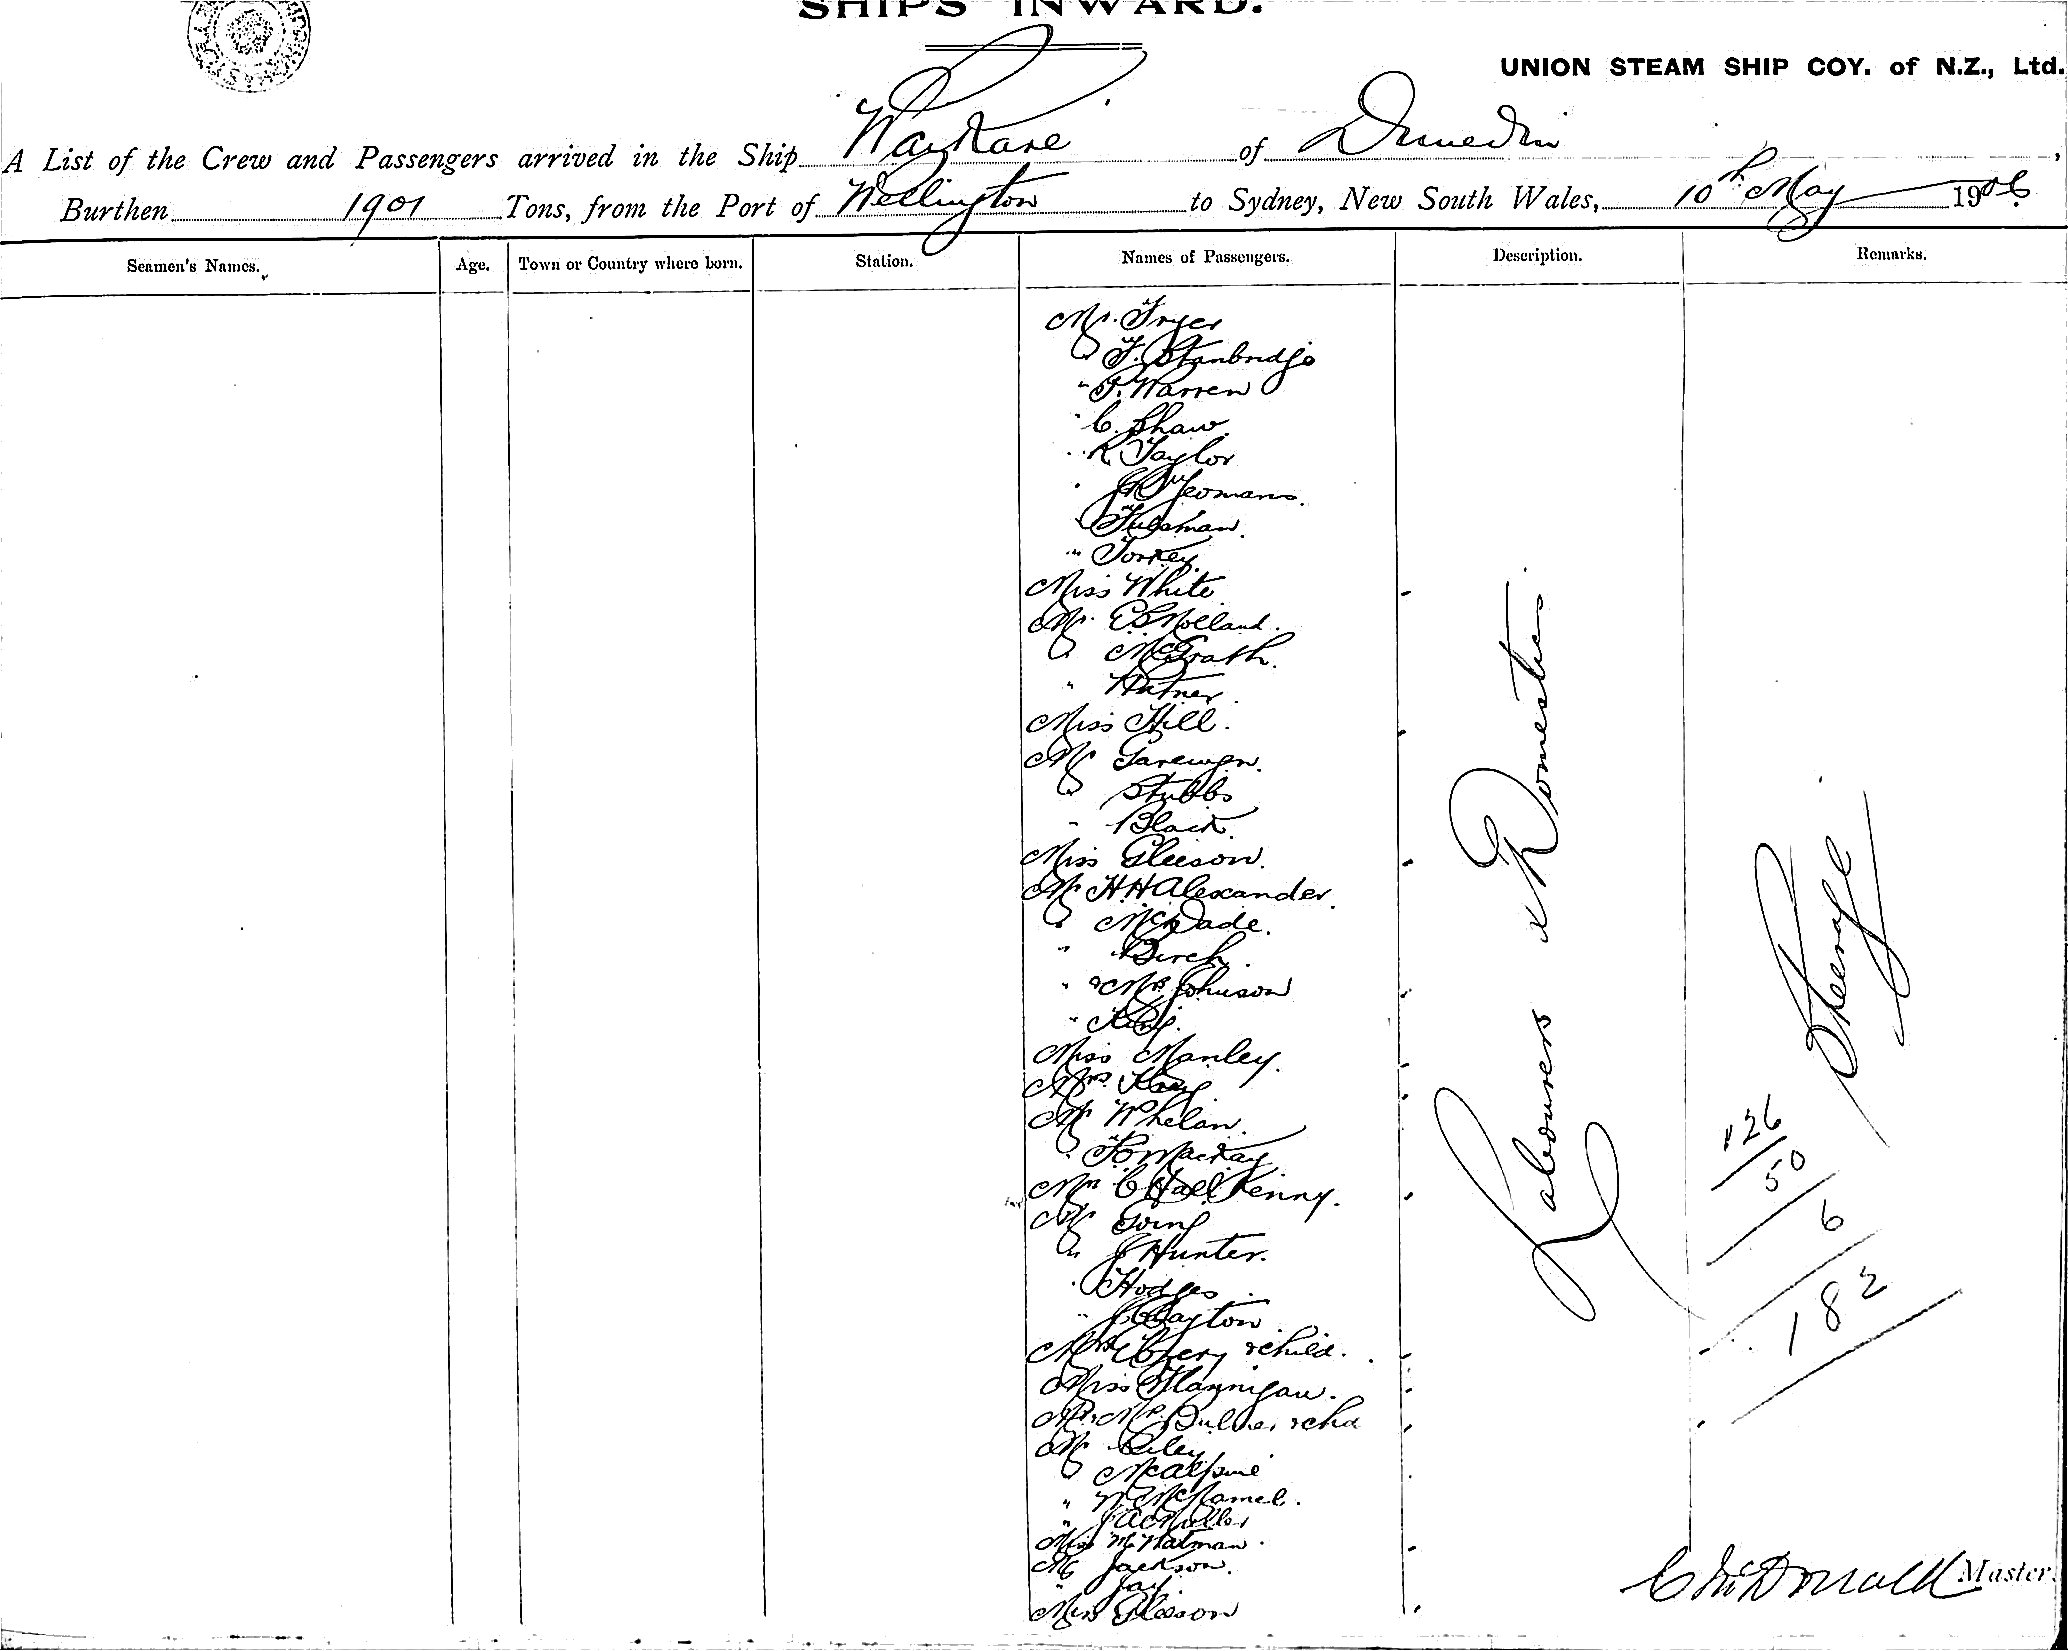 SHIPS INWARD.
UNION STEAM SHIP COY. of N.Z., Ltd.
A List of the Crew and Passengers arrived in the Ship Waikare of Dunedin,
Burthen 1901 Tons, from the Port of Wellington to Sydney, New South Wales, 10th May 1906
Seamen's Names. Age. Town or Country where born. Station. Names of Passengers. Description. Remarks.
Mr. Fryer
" F. Stanbridge
" P. Warren
" C. Shaw
" R Taylor
Yeomans.
"
" Torrey
Miss White
Mr. Holland.
" McGrath.
"
Miss Hill.
Mr
" Stubbs
" Black.
Miss Gleeson.
Mr H.H Alexander.
" McDade.
" Birch.
" & Mrs Johnson
" King.
Miss Manley.
Mrs King
Mr Whelan.
" Mackay
C Hall Kenny.
Mr Going
" J Hunter.
" Hodges
" Clayton
Mrs & child.
Miss Flannigan.
Mr. Mrs & chd
Mr Riley
" McAlpine
" W
"
Miss M. Watman.
Mr Jackson.
" Jay.
Miss Gleeson
Labourers & Domestics
Steerage
126
50
6
182
C McDonald Master.